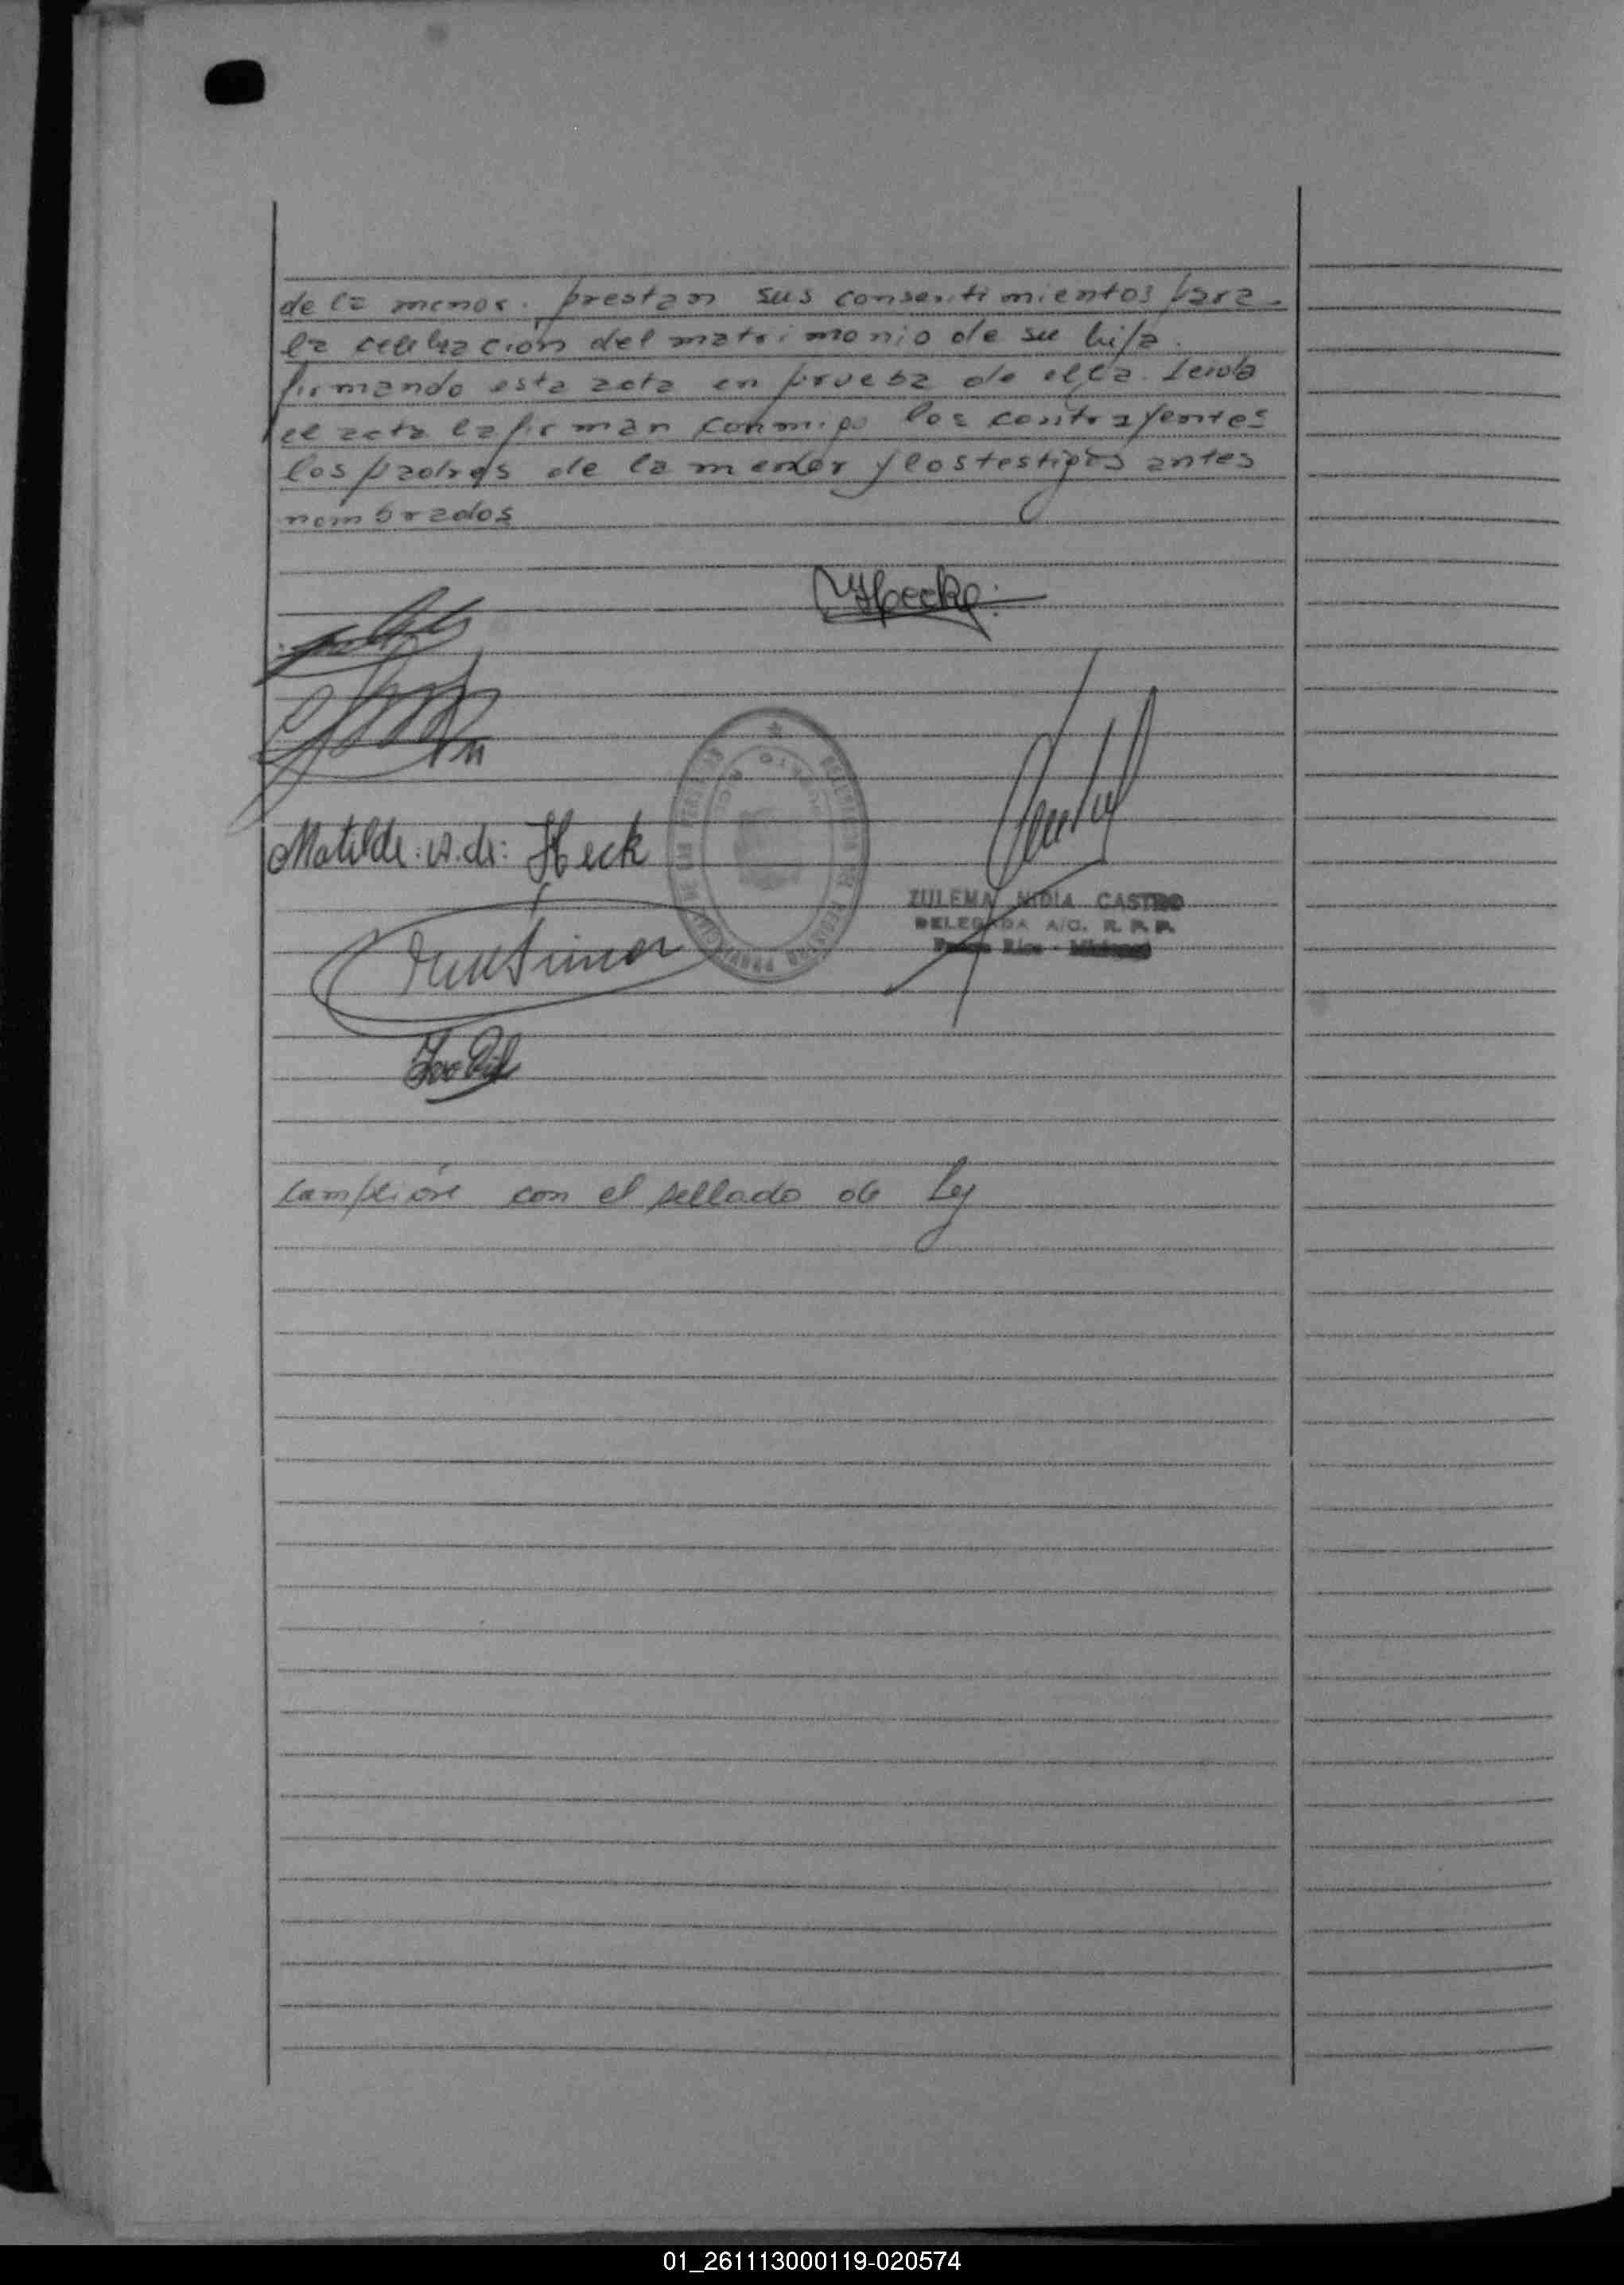 de la menor. prestan sus consentimientos para
la celebracion del matrimonio de su hija.
firmando esta acta en prueba de ella. Leida
el acta la firman conmigo los contrayentes
los padres de la menor y los testigos antes
nombrados
Hecke
Matilde. W. de: Heck
PUERTO RICO
ZULEMA NIDIA CASTRO
DELEGADA A/C. R. P. P.
Puerto Rico - Misiones
con el sellado de Ley
01_261113000119-020574